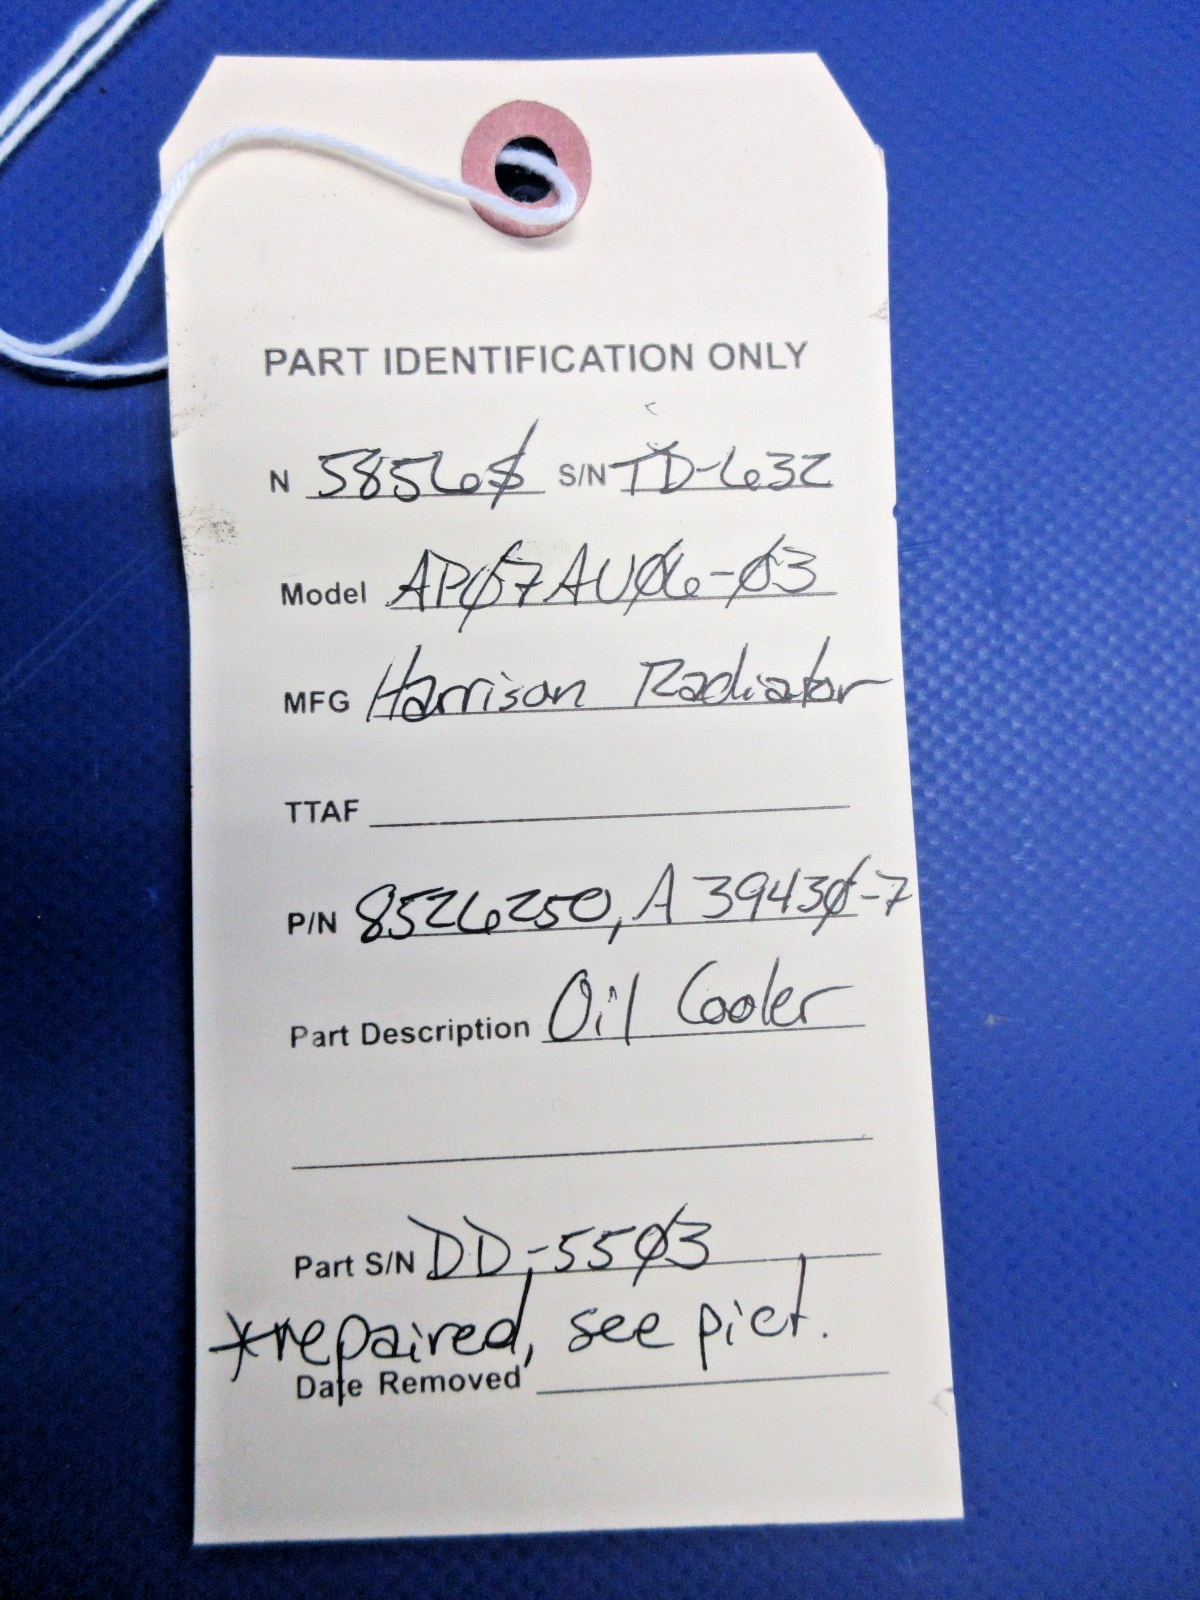 PART IDENTIFICATION ONLY
N 58560 S/N TD-632
Model AP07AU06-03
MFG Harrison Radiator
TTAF
P/N 8526250, A39430-7
Part Description Oil Cooler
Part S/N DD-5503
*repaired, see pict.
Date Removed